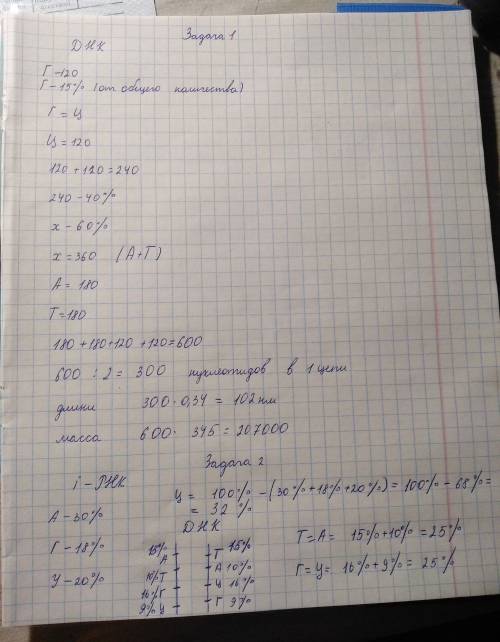 Задача 1
ДНК
Г-120
Г-15% (от общего количества)
Г = Ц
Ц = 120
120 + 120 = 240
240 - 40%
х - 60%
х = 360 (А+Т)
А = 180
Т = 180
180 + 180 + 120 + 120 = 600
600 : 2 = 300 нуклеотидов в 1 цепи
длина 300 · 0,34 = 102 нм
масса 600 · 345 = 207000
Задача 2
i - РНК
Ц = 100% - (30% + 18% + 20%) = 100% - 68% =
= 32%
А - 30%
Г - 18%
У - 20%
ДНК
15% А Т 15%
10% Т А 10%
16% Г Ц 16%
9% Ц Г 9%
Т = А = 15% + 10% = 25%
Г = Ц = 16% + 9% = 25%